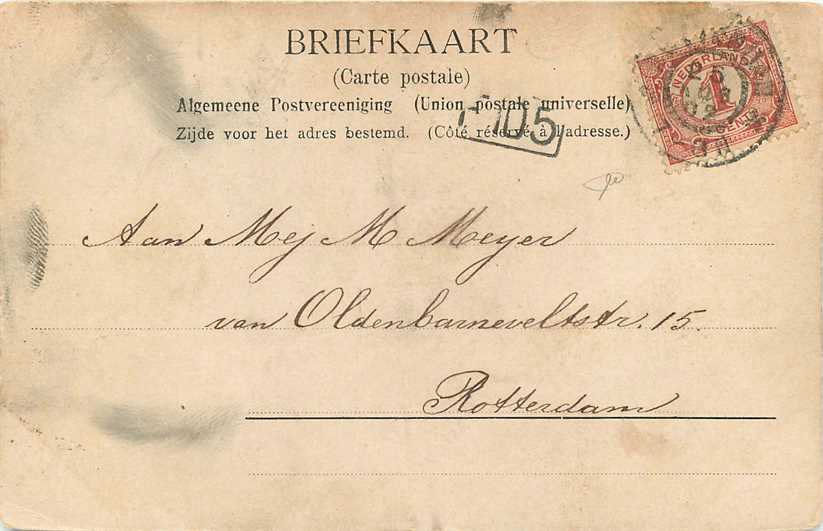 BRIEFKAART
(Carte postale)
Algemeene Postvereeniging (Union postale universelle)
Zijde voor het adres bestemd. (Côté réservé à l'adresse.)
NEDERLAND
1
CENT
Aan Mej M Meyer
van Oldenbarneveltstr. 15.
Rotterdam